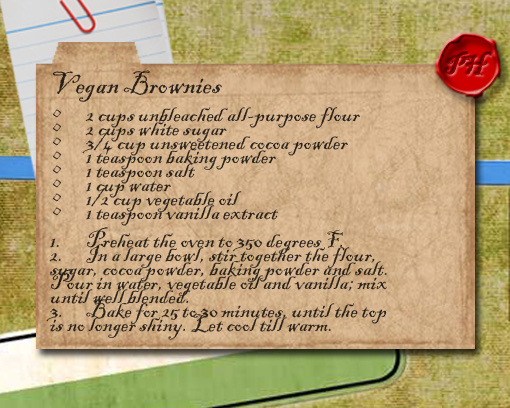 TH
Vegan Brownies
◊ 2 cups unbleached all-purpose flour
◊ 2 cups white sugar
◊ 3/4 cup unsweetened cocoa powder
◊ 1 teaspoon baking powder
◊ 1 teaspoon salt
◊ 1 cup water
◊ 1/2 cup vegetable oil
◊ 1 teaspoon vanilla extract
1. Preheat the oven to 350 degrees F.
2. In a large bowl, stir together the flour,
sugar, cocoa powder, baking powder and salt.
Pour in water, vegetable oil and vanilla; mix
until well blended.
3. Bake for 25 to 30 minutes, until the top
is no longer shiny. Let cool till warm.